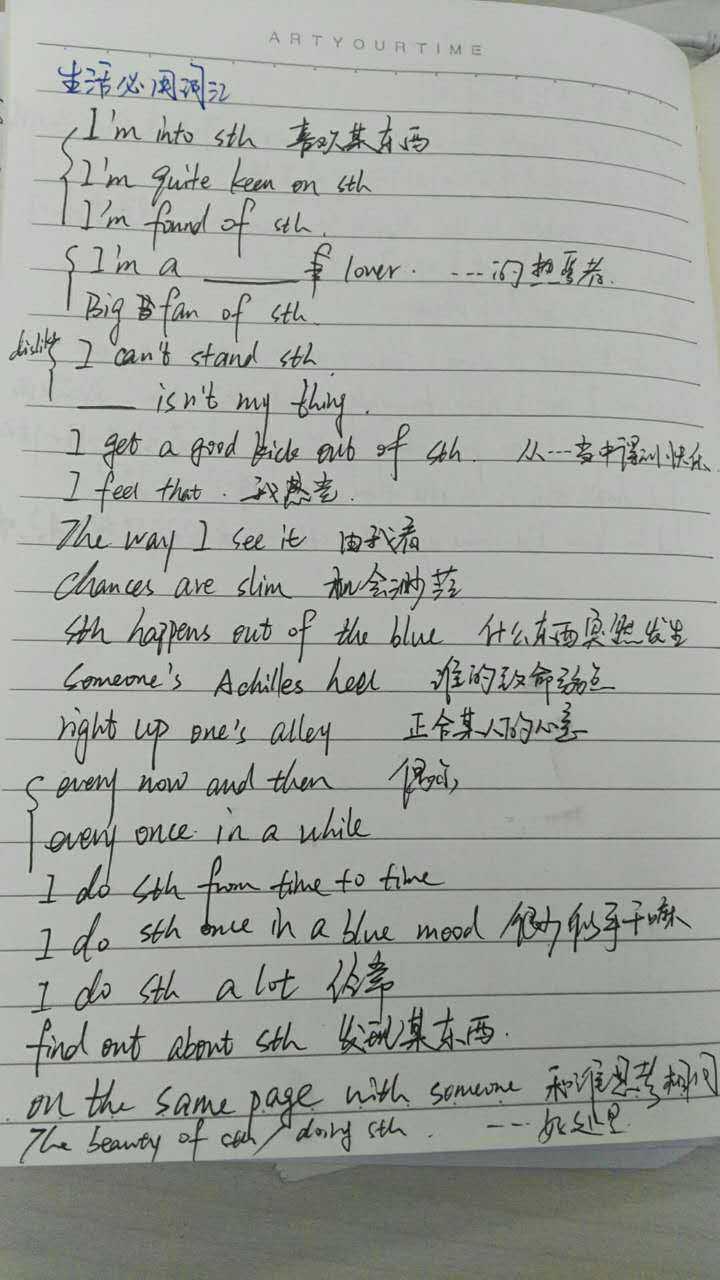 ARTYOURTIME
生活必用词汇
I'm into sth 喜欢某东西
I'm quite keen on sth
I'm found of sth.
I'm a ____ lover. ---的热爱者.
Big fan of sth.
dislike
I can't stand sth
___ isn't my thing.
I get a good kick out of sth. 从---当中得到快乐
I feel that. 我感觉.
The way I see it 由我看
Chances are slim 机会渺茫
sth happens out of the blue 什么东西突然发生
Someone's Achilles heel 谁的致命弱点
right up one's alley 正合某人的心意
every now and then 偶尔
every once in a while
I do sth from time to time
I do sth once in a blue mood 很少做某事
I do sth a lot 经常
find out about sth 发现某东西.
on the same page with someone 和谁思考相同
The beauty of sth / doing sth. ---好处是